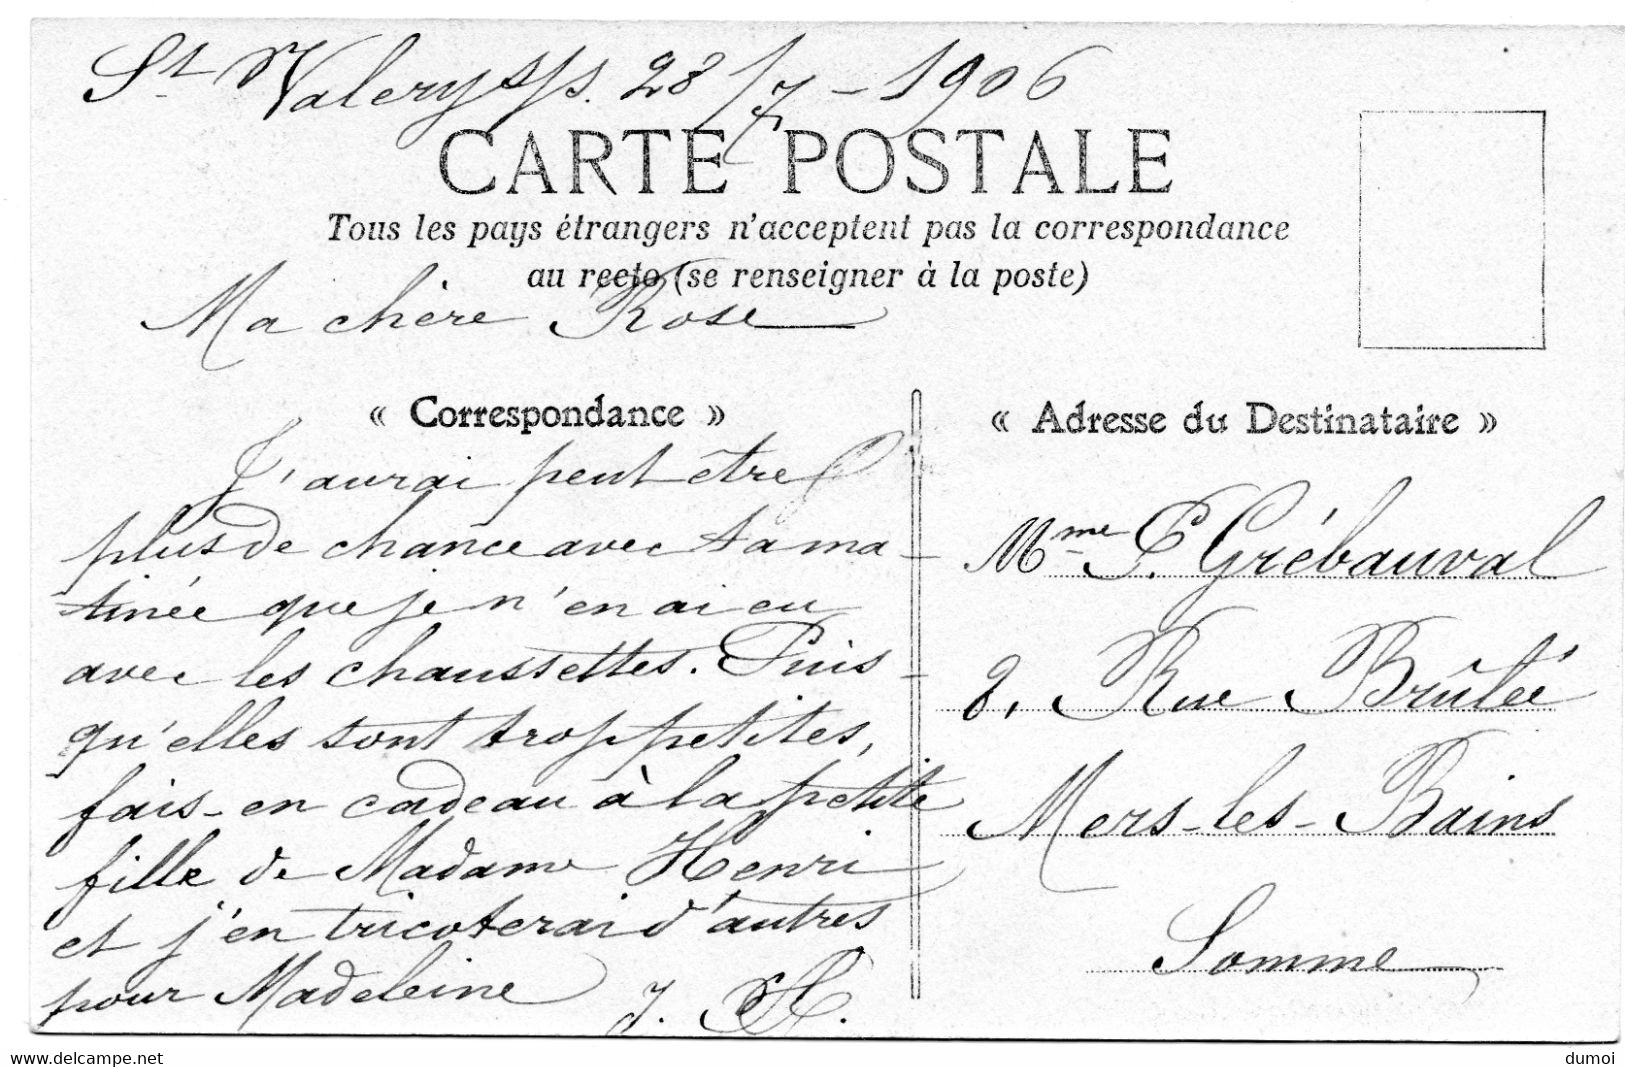 St Valery s/s. 28/7 - 1906
CARTE POSTALE
Tous les pays étrangers n'acceptent pas la correspondance
au recto (se renseigner à la poste)
Ma chère Rose
« Correspondance »
J'aurai peut être
plus de chance avec ta ma-
tinée que je n'en ai eu
avec les chaussettes. Puis-
qu'elles sont trop petites,
fais-en cadeau à la petite
fille de Madame Henri
et j'en tricoterai d'autres
pour Madeleine J. H.
« Adresse du Destinataire »
Mme P. Grébauval
8, Rue Brûlée
Mers-les-Bains
Somme
delcampe.net
dumoi